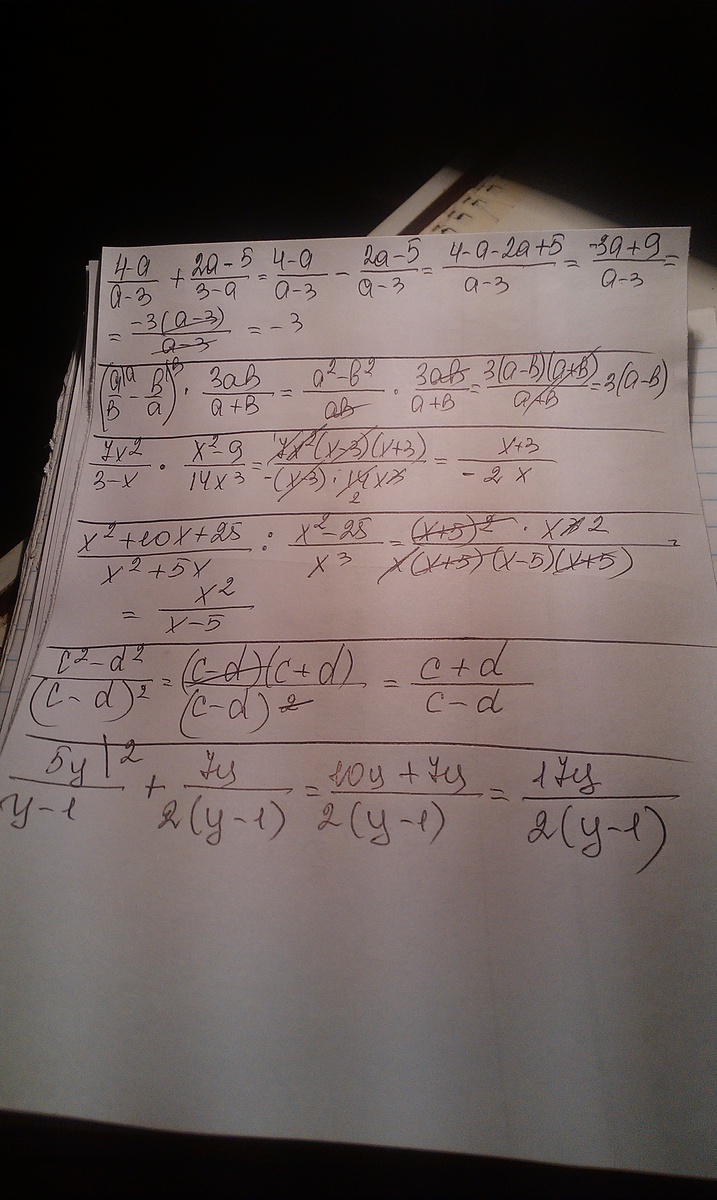 (4-a)/(a-3) + (2a-5)/(3-a) = (4-a)/(a-3) - (2a-5)/(a-3) = (4-a-2a+5)/(a-3) = (-3a+9)/(a-3) =
= -3(a-3)/(a-3) = -3
(a/в |a - в/a |в) · 3aв/(a+в) = (a²-в²)/(aв) · 3aв/(a+в) = 3(a-в)(a+в)/(a+в) = 3(a-в)
7x²/(3-x) · (x²-9)/(14x³) = 7x²(x-3)(x+3)/(-(x-3)·14x³) 2 = (x+3)/(-2x)
(x²+10x+25)/(x²+5x) : (x²-25)/x³ = (x+5)² · x³ 2/(x(x+5)(x-5)(x+5)) =
= x²/(x-5)
(c²-d²)/(c-d)² = (c-d)(c+d)/(c-d)² = (c+d)/(c-d)
5y |2/(y-1) + 7y/(2(y-1)) = (10y+7y)/(2(y-1)) = 17y/(2(y-1))